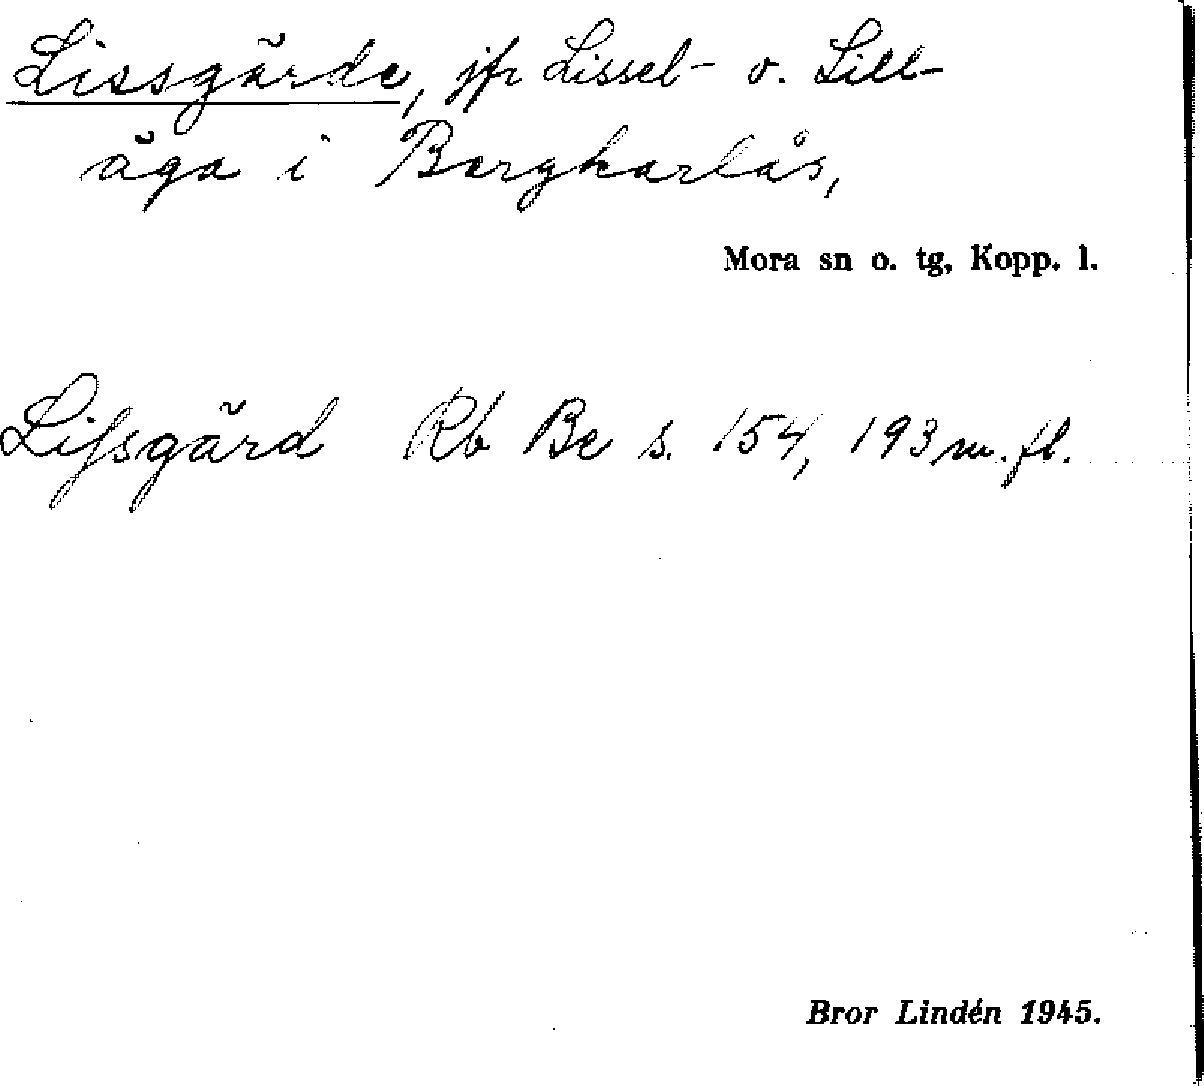 Lissgärde, jfr Lissel- o. Lill-
äga i Bergkarlås,
Mora sn o. tg, Kopp. l.
Lissgärd Rb Be s. 154, 193 m. fl.
Bror Lindén 1945.